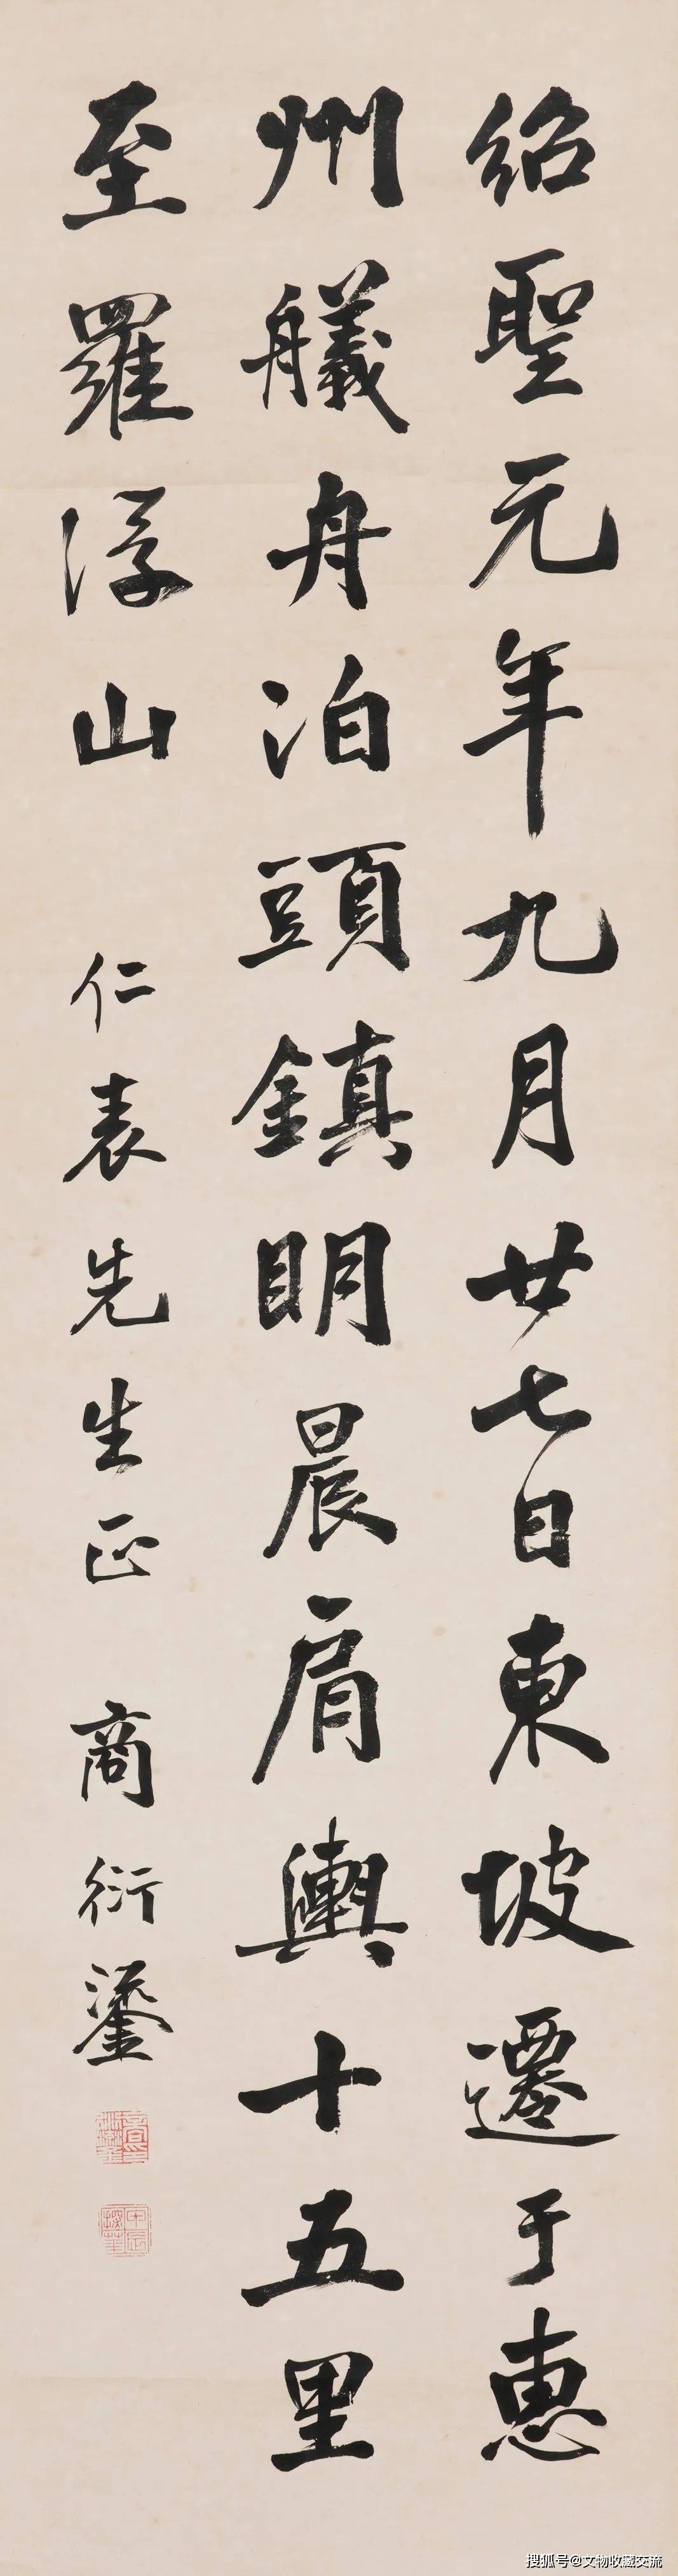 紹聖元年九月廿七日東坡遷于惠
州艤舟泊頭鎮明晨肩輿十五里
至羅浮山
仁表先生正
商衍鎏
搜狐号@文物收藏交流